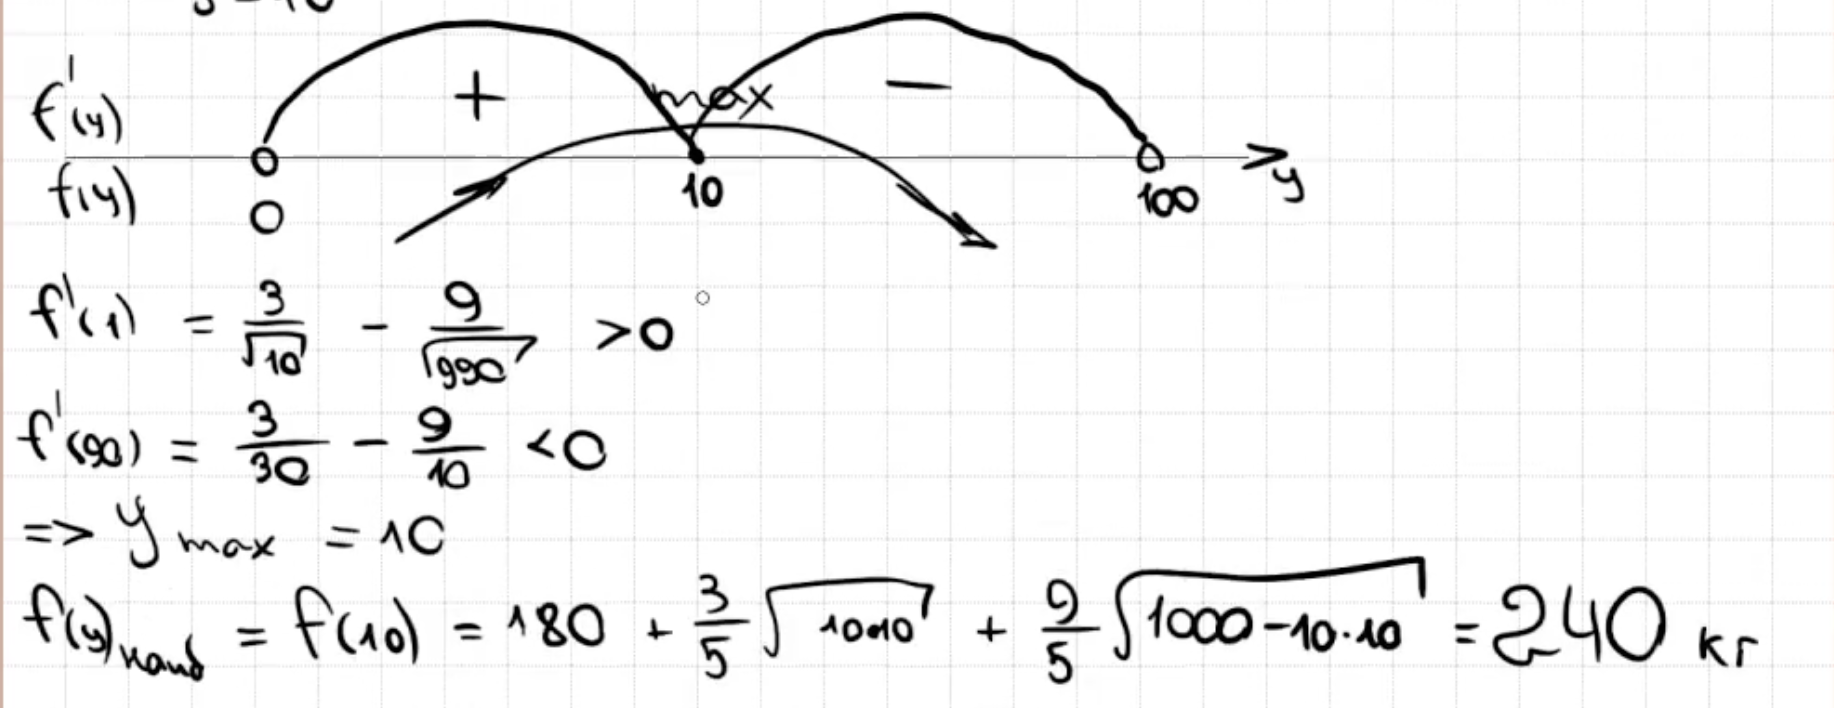 f'(y)
+
max
−
f(y)
0
10
100
y
f'(1) = 3/√10 − 9/√990 > 0
f'(90) = 3/30 − 9/10 < 0
=> y max = 10
f(y)наиб = f(10) = 180 + 3/5 √10·10 + 9/5 √1000−10·10 = 240 кг